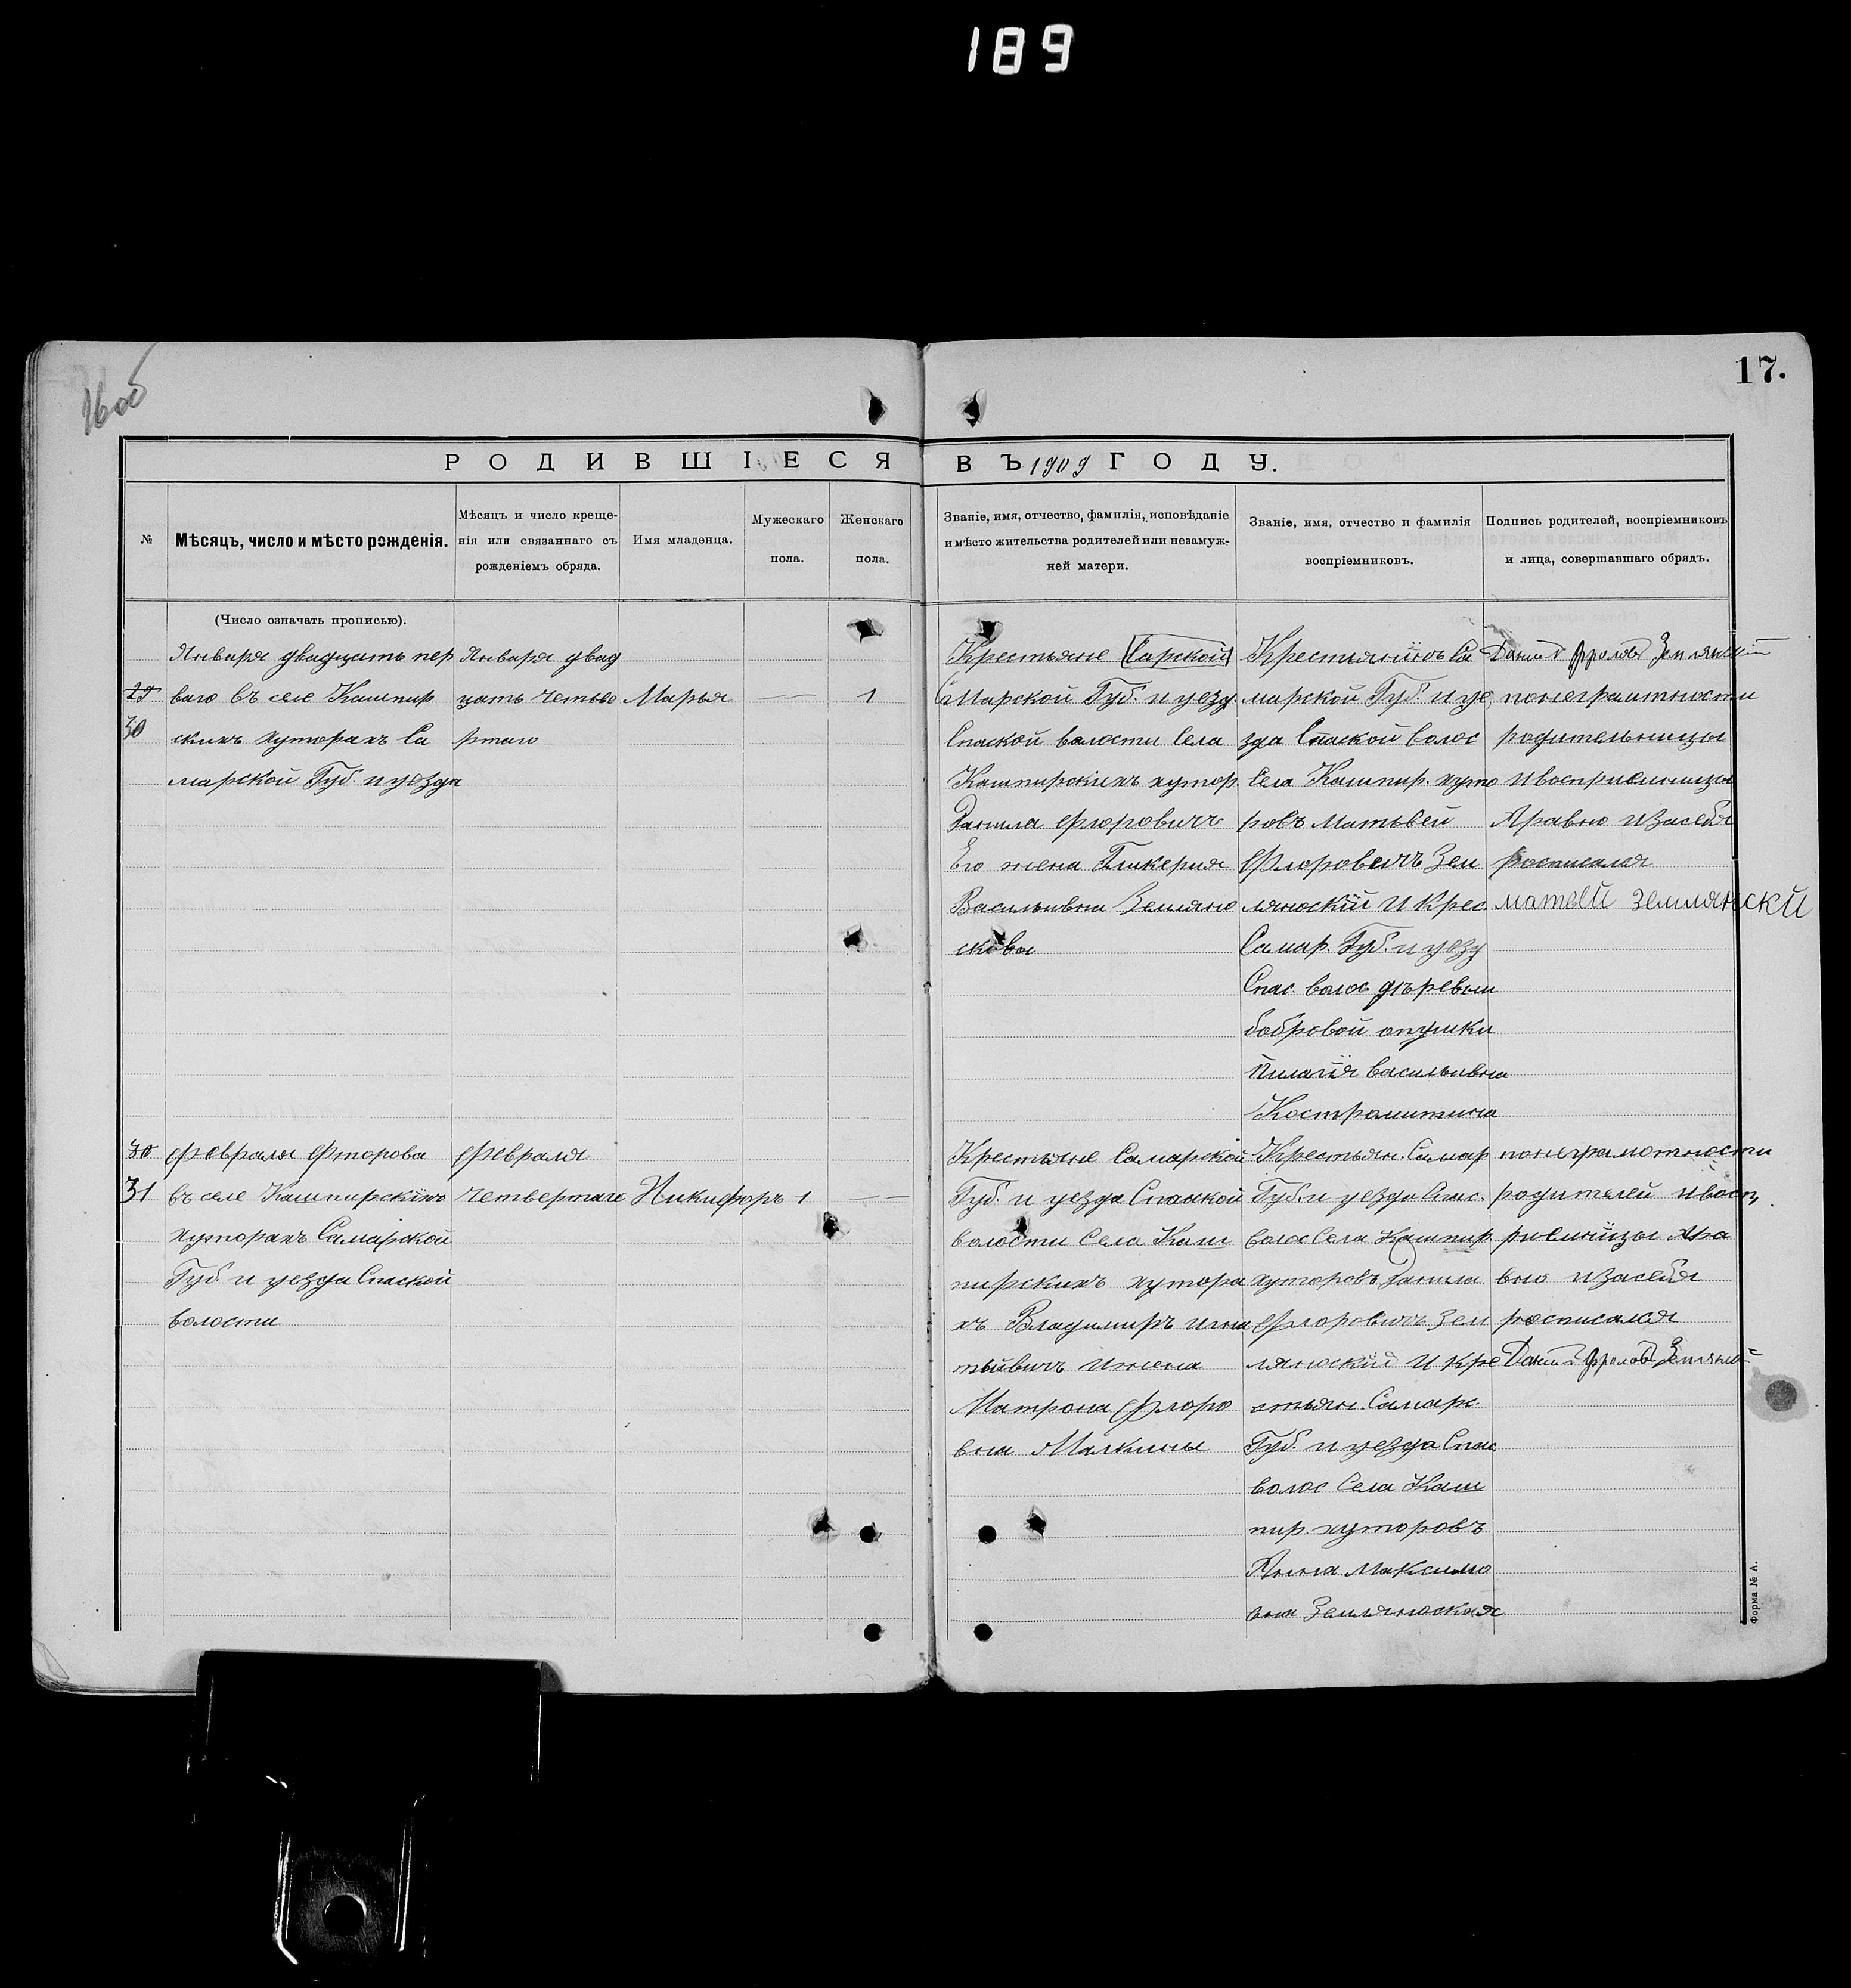 189
17.
16 об
РОДИВШІЕСЯ ВЪ 1909 ГОДУ.
№
Мѣсяцъ, число и мѣсто рожденія.
Мѣсяцъ и число креще-
нія или связаннаго съ
рожденіемъ обряда.
Имя младенца.
Мужескаго
пола.
Женскаго
пола.
Званіе, имя, отчество, фамилія, исповѣданіе
и мѣсто жительства родителей или незамуж-
ней матери.
Званіе, имя, отчество и фамилія
воспріемниковъ.
Подпись родителей, воспріемниковъ
и лица, совершавшаго обрядъ.
(Число означать прописью).
29
30
Января двадцать пер
ваго въ селе Кашпир
скихъ хуторахъ Са
марской Губ. и уезда
Января двад
цать четьве
ртаго
Марья
1
Крестьяне (Сарской)
Самарской Губ. и уезд.
Спаской волости Села
Кашпирскихъ хутор.
Данила Флоровичъ
Его жена Гликерия
Васильивна Земляно
сковы
Крестьянинъ Са
марской Губ. и уе
зда Спаской волос
Села Кашпир. хуто
ровъ Матьвей
Флоровичъ Зем
ляноский И Крес.
Самар. Губ. и уезд
Спас. волос дъревьни
бобровой опушки
Пилагия васильивна
Костромитина
Данил Фролов
понеграмтности
родительницы
Ивосприемницы
Аравно Изасебя
росписался
матвей землянскй
30
31
Февраля Фторова
въ селе Кашпирскихъ
хуторахъ Самарской
Губ. и уезда Спаской
волости
Февраля
четвертаго
Никифоръ
1
Крестьяне Самарской
Губ. и уезда Спаской
волости Села Каш
пирскихъ хутора
хъ Владимиръ Игна
тьивичъ Ижена
Матрона Флоро
вна Малкины
Крестьян. Самар
Губ. и уезда Спас.
волос Села Кашпир.
хуторовъ Данила
Флоровичъ Зем
ляноский И Кре
стьян. Самарс.
Губ. и уезда Спас
волос Села Каш
пир. хуторовъ
Анна Максимо
вна Земляноская
понеграмотности
родителей Ивосп
риемницы Ара
вно Изасебя
росписался
Данил Фролов
Форма № А.